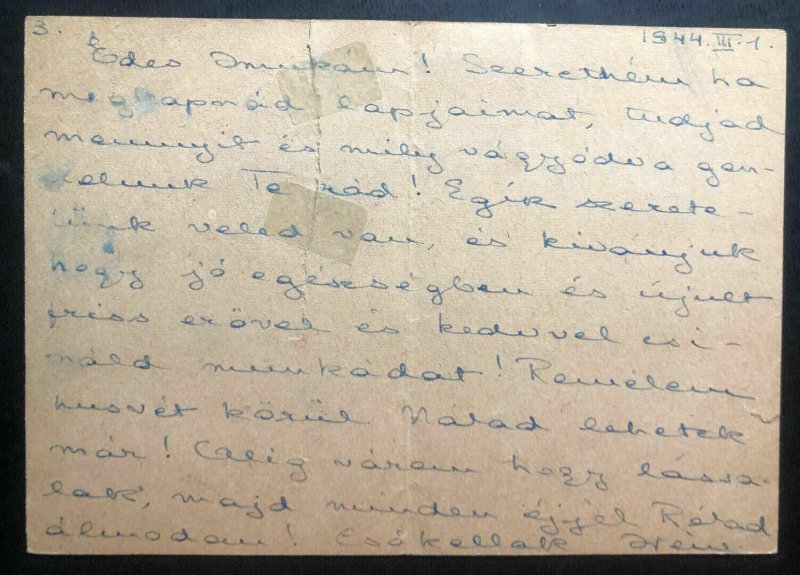 3. 1944.III.1.
Édes Imukám! Szeretném ha
megkapnád lapjaimat, tudjad
mennyit és mily vágyódva gon-
dolunk Te rád! Egik szerete-
tünk veled van, és kivánjuk
hogy jó egészségben és újult
friss erővel és kedvvel csi-
náld munkádat! Remélem
husvét körül Nálad lehetek
már! Alig várom hogy lássa-
lak, majd minden éjjel Rólad
álmodom! Csókollak